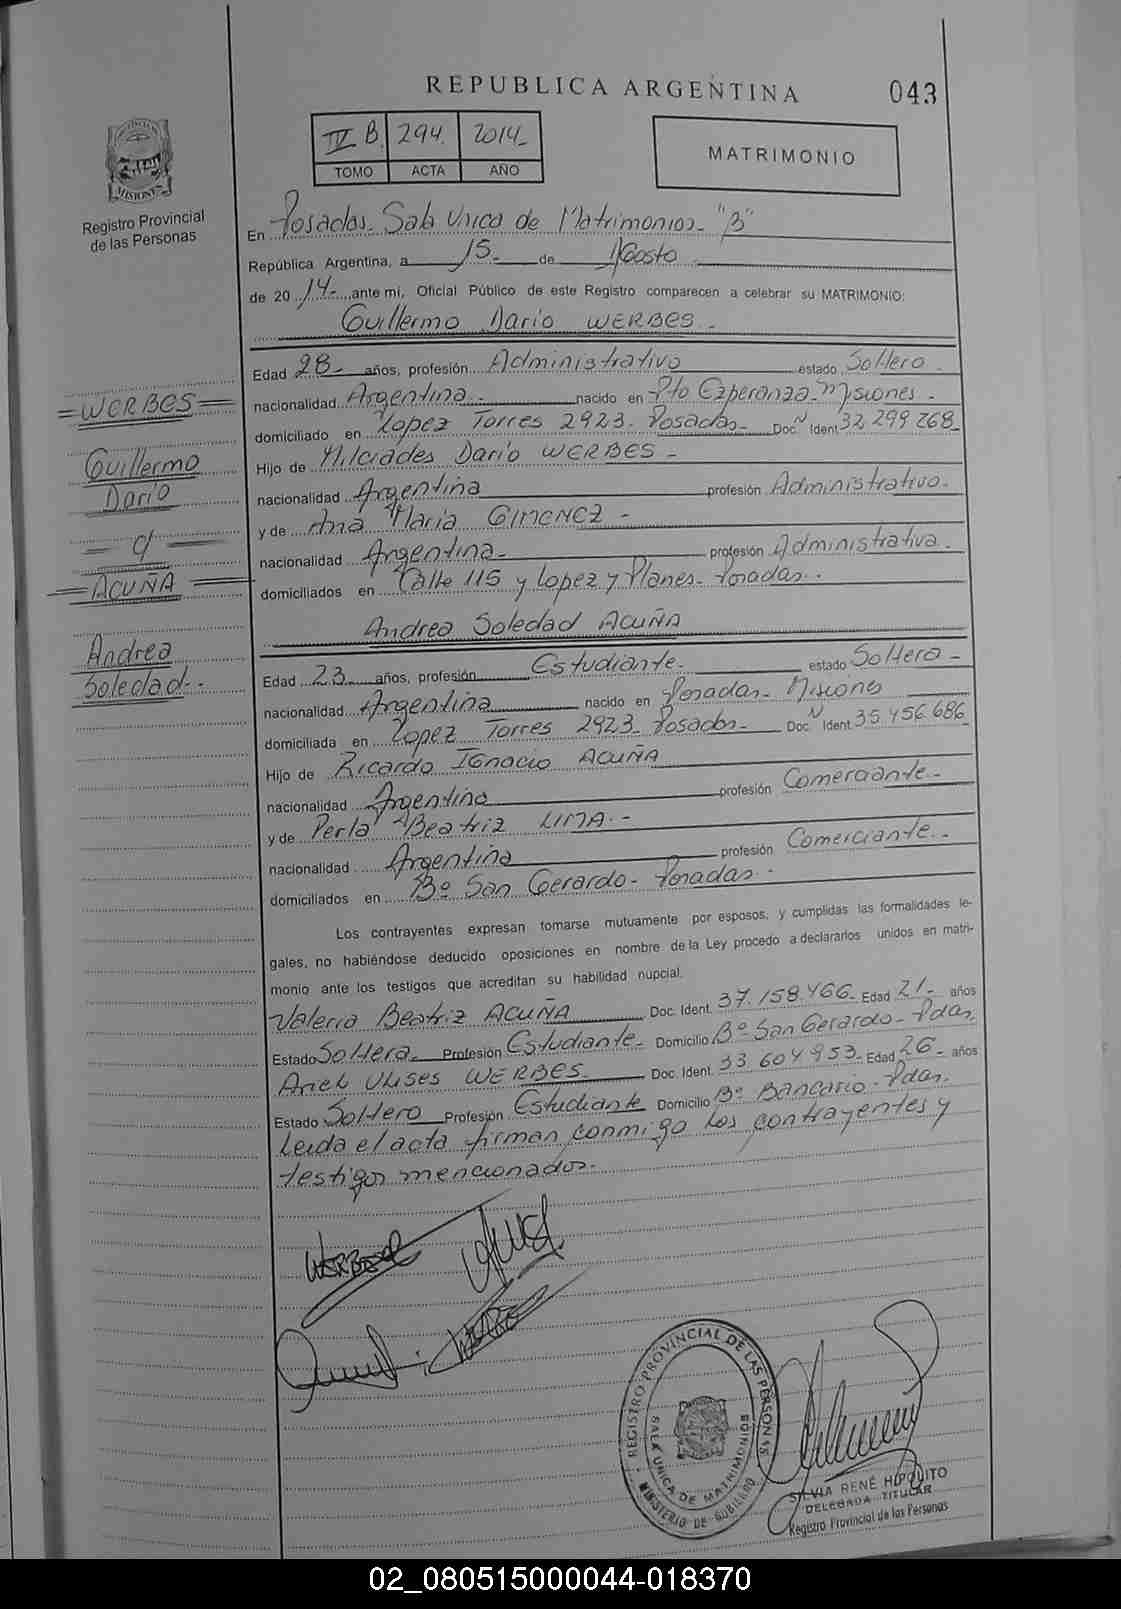 REPUBLICA ARGENTINA
043
IV B. 294. 2014-
TOMO ACTA AÑO
MATRIMONIO
MISIONES
Registro Provincial
de las Personas
En Posadas- Sala Unica de Matrimonios- "B"
República Argentina, a 15- de Agosto
de 20 14- ante mi, Oficial Público de este Registro comparecen a celebrar su MATRIMONIO:
Guillermo Dario WERBES-
Edad 28- años, profesión Administrativo estado Soltero-
nacionalidad Argentina- nacido en Pto Esperanza-Misiones-
domiciliado en Lopez Torres 2923- Posadas- Doc N Ident 32.299.268-
Hijo de Milciades Dario WERBES-
nacionalidad Argentina profesión Administrativo-
y de Ana Maria GIMENEZ-
nacionalidad Argentina- profesión Administrativa-
domiciliados en Calle 115 y Lopez y Planes- Posadas-
Andrea Soledad ACUÑA
Edad 23- años, profesión Estudiante- estado Soltera-
nacionalidad Argentina nacido en Posadas- Misiones
domiciliada en Lopez Torres 2923- Posadas- Doc N Ident 35.456.686
Hijo de Ricardo Ignacio ACUÑA
nacionalidad Argentino profesión Comerciante-
y de Perla Beatriz LIMA-
nacionalidad Argentina profesión Comerciante-
domiciliados en Bº San Gerardo- Posadas-
Los contrayentes expresan tomarse mutuamente por esposos, y cumplidas las formalidades le-
gales, no habiéndose deducido oposiciones en nombre de la Ley procedo a declararlos unidos en matri-
monio ante los testigos que acreditan su habilidad nupcial.
Valeria Beatriz ACUÑA Doc. Ident. 37.158.466- Edad 21- años
Estado Soltera- Profesión Estudiante- Domicilio Bº San Gerardo- Pdas.
Ariel Ulises WERBES- Doc. Ident. 33.604.953- Edad 26- años
Estado Soltero Profesión Estudiante Domicilio Bº Bancario- Pdas.
Leida el acta firman conmigo los contrayentes y
testigos mencionados-
=WERBES=
Guillermo
Dario
= c/ =
= ACUÑA =
Andrea
Soledad-
REGISTRO PROVINCIAL DE LAS PERSONAS
SALA UNICA DE MATRIMONIOS
MINISTERIO DE GOBIERNO
SILVIA RENÉ HIPOLITO
DELEGADA TITULAR
Registro Provincial de las Personas
02_080515000044-018370